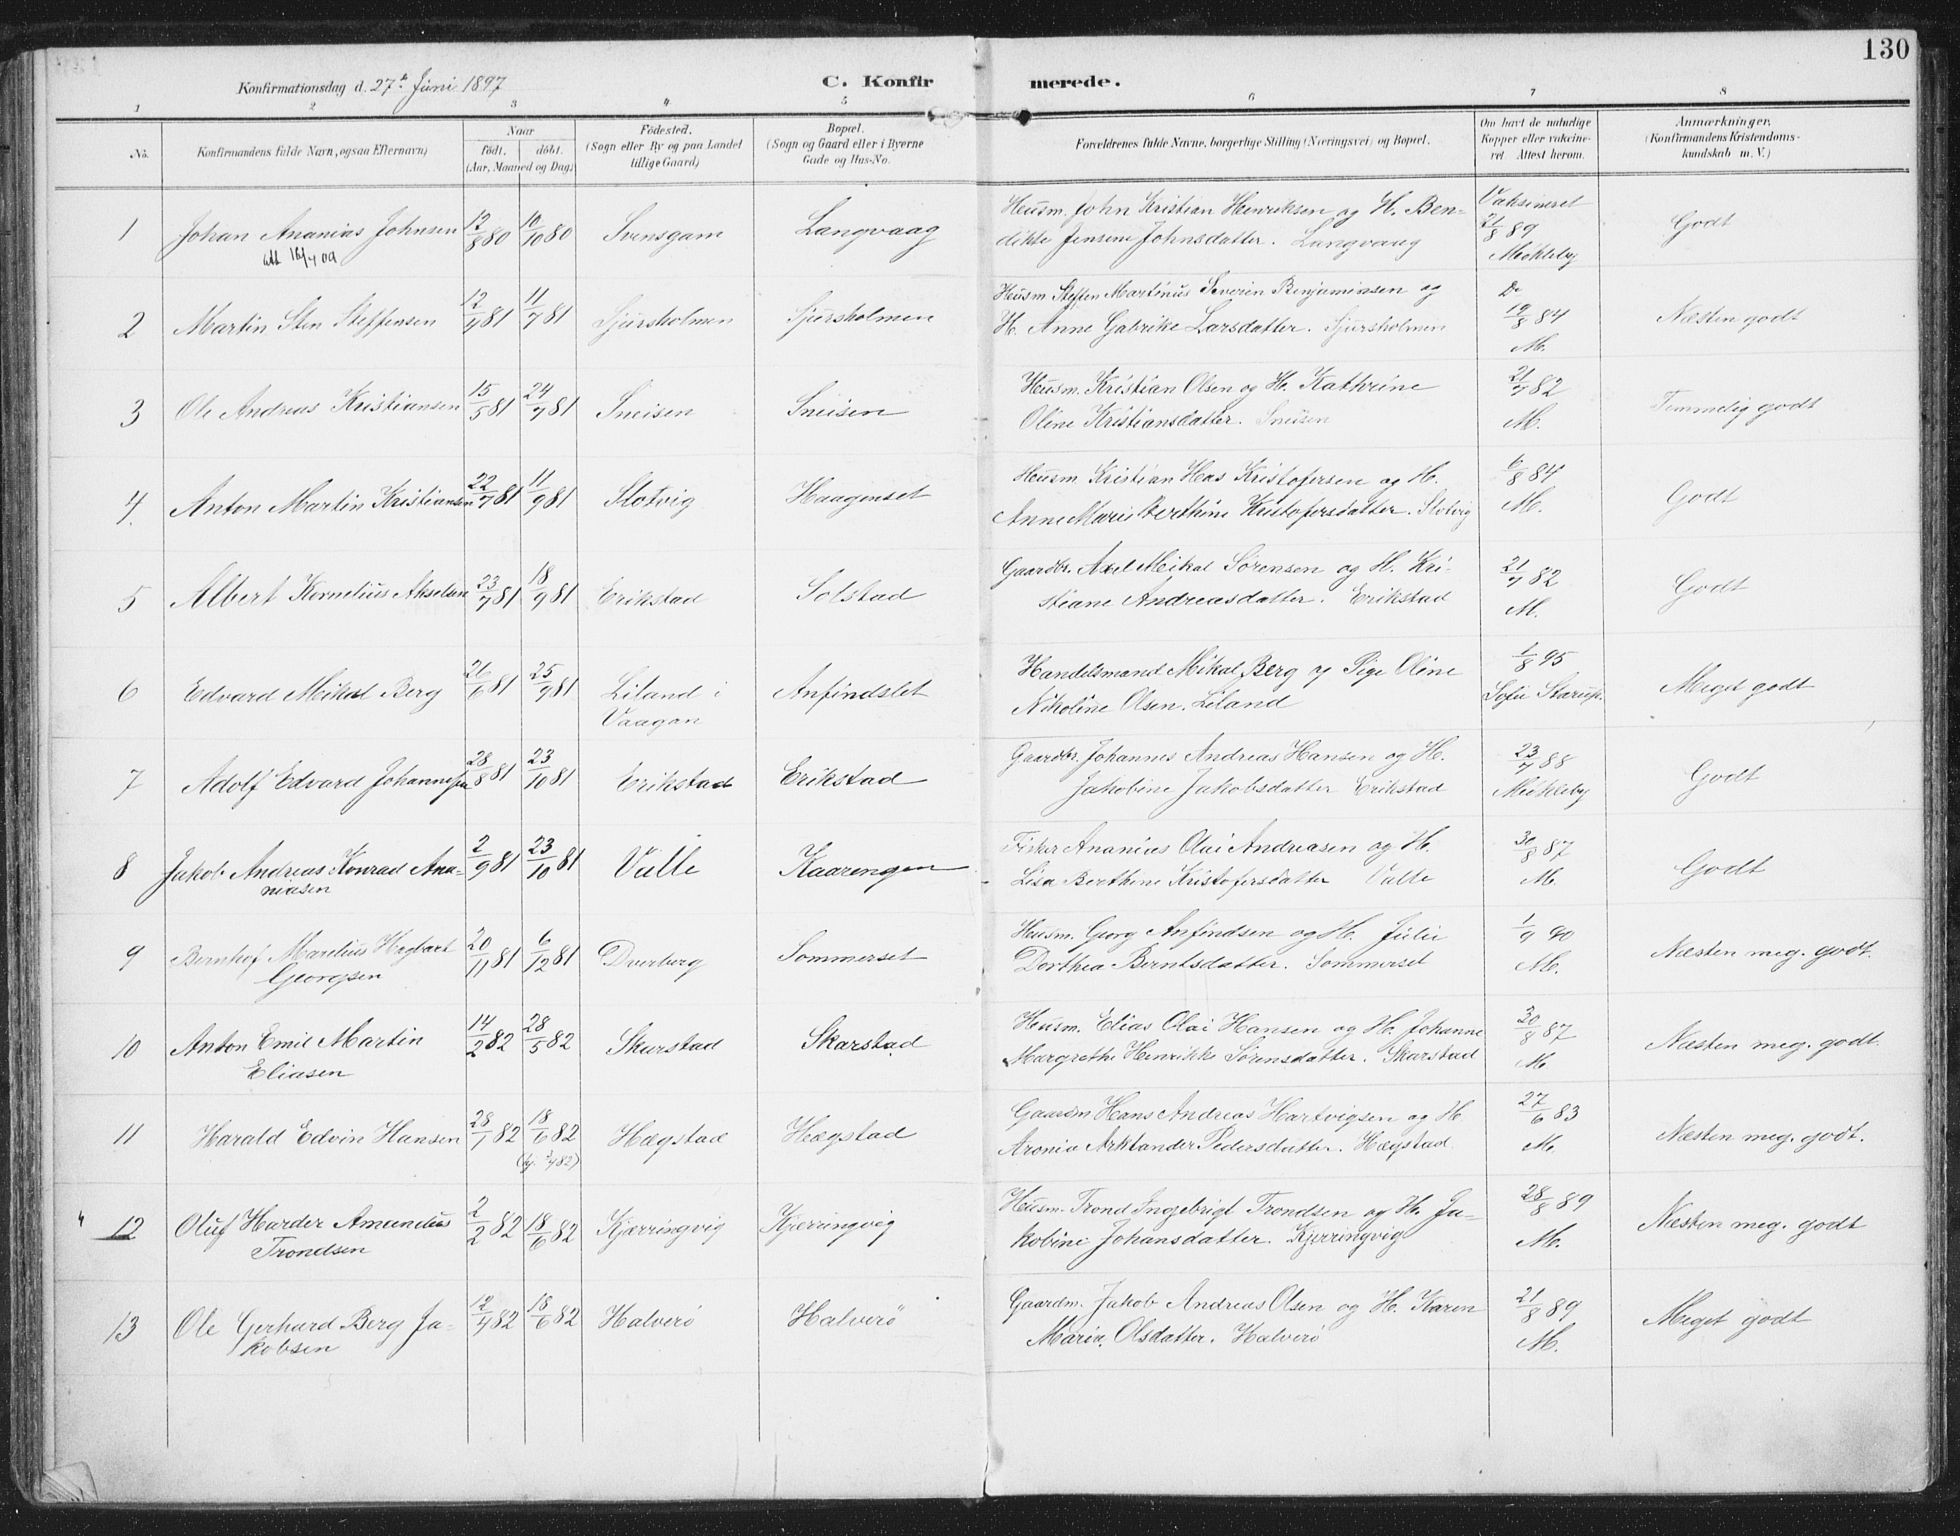 130
Konfirmationsdag d. 27de Juni 1897 C. Konfirmerede.
1 2 3 4 5 6 7 8
No. Konfirmandens fulde Navn, ogsaa Efternavn) Naar födt, döbt. (Aar, Maaned og Dag) Födested. (Sogn eller By og paa Landet tillige Gaard) Bopæl. (Sogn og Gaard eller i Byerne Gade og Hus-No. Forældrenes fulde Navne, borgerlige Stilling (Næringsvei) og Bopæl. Om havt de naturlige Kopper eller vakcineret. Attest herom. Anmærkninger. (Konfirmandens Kristendomskundskab m. V.)
1 Johan Ananias Johnsen 12/8 80 10/10 80 Svensgam Langvaag Husm. John Kristian Henriksen og H. Ben- Vaksineret 21/8 89 Godt
att 16/4 09 dikte Jensine Johnsdatter. Langvaag Mekleby
2 Martin Sten Steffensen 12/4 81 11/7 81 Sjursholmen Sjursholmen Husm. Steffen Martinus Severin Benjaminsen og Do 19/8 84 Næsten godt
H. Anne Gabrike Larsdatter. Sjursholmen M.
3 Ole Andreas Kristiansen 15/5 81 24/7 81 Sneisen Sneisen Husm. Kristian Olsen og H. Kathrine 21/7 82 Temmelig godt
Oline Kristiansdatter. Sneisen M.
4 Anton Martin Kristiansen 22/7 81 11/9 81 Slotvig Haagenset Husm Kristian Has Kristofersen og H. 6/8 84 Godt
Anne Marie Berthine Kristofersdatter. Slotvig M.
5 Albert Kornelius Akselsen 23/7 81 18/9 81 Erikstad Solstad Gaardbr. Axel Mikal Sörensen og H. Kri- 21/7 82 Godt
stiane Andreasdatter. Erikstad M.
6 Edvard Mikal Berg 26/6 81 25/9 81 Liland i Anfindslet Handelsmand Mikal Berg og Pige Oline 1/8 95 Meget godt
Vaagan Nikoline Olsen. Liland Sofie Starup.
7 Adolf Edvard Johannesen 28/8 81 23/10 81 Erikstad Erikstad Gaardbr. Johannes Andreas Hansen og H. 23/7 88 Godt
Jakobine Jakobsdatter Erikstad Mekleby
8 Jakob Andreas Konrad Ana- 2/9 81 23/10 81 Valle Kaaringen Fisker Ananias Olai Andreasen og H. 30/8 87 Godt
niasen Lisa Berthine Kristofersdatter Valle M.
9 Bernhof Marelius Hagbart 20/11 81 6/12 81 Dverberg Sommerset Husm. Georg Anfindsen og H. Julie 1/9 90 Næsten meg. godt.
Georgsen Dorthea Berntsdatter. Sommerset M.
10 Anton Emil Martin 14/2 82 28/5 82 Skarstad Skarstad Husm. Elias Olai Hansen og H. Johanne 30/8 87 Næsten meg. godt.
Eliasen Margrethe Henrikke Sörensdatter. Skarstad M
11 Harald Edvin Hansen 28/1 82 18/6 82 Hægstad Hægstad Gaardm Hans Andreas Hartvigsen og H. 27/6 83 Næsten meg. godt.
Aronia Arktander Pedersdatter. Hægstad M.
12 Oluf Harder Amandus 2/2 82 18/6 82 Kjærringvig Kjerringvig Husm. Trond Ingebrigt Trondsen og H. Ja- 28/8 89 Næsten meg. godt
Trondsen kobine Johansdatter. Kjerringvig M.
13 Ole Gerhard Berg Ja- 12/4 82 18/6 82 Halverö Halverö Gaardm. Jakob Andreas Olsen og H. Karen 21/8 89 Meget godt
kobsen Maria Olsdatter. Halverö M.